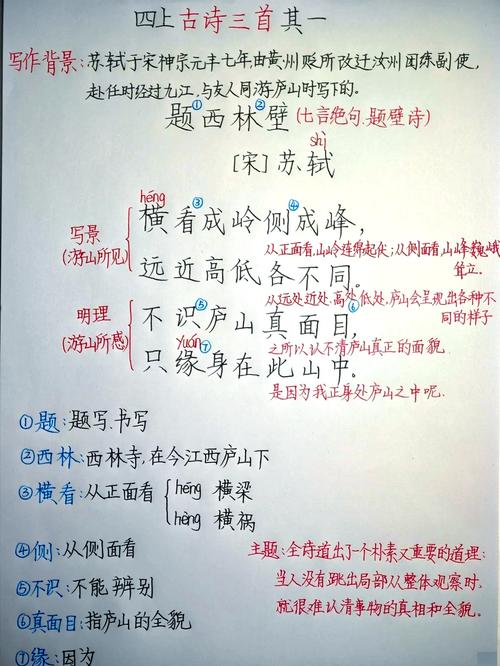 四上古诗三首其一
写作背景:苏轼于宋神宗元丰七年由黄州贬所改迁汝州团练副使,
赴任时经过九江,与友人同游庐山时写下的。
① ②
题西林壁(七言绝句、题壁诗)
shì
[宋]苏轼
héng ③ ④
横看成岭侧成峰,
写景
(游山所见)
从正面看,山岭连绵起伏;从侧面看,山峰巍峨
耸立。
远近高低各不同。
从远处近处、高处低处,庐山会呈现出各种不
同的样子
明理
(游山所感)
⑤ ⑥
不识庐山真面目,
之所以认不清庐山真正的面貌
yuán ⑦
只缘身在此山中。
是因为我正身处庐山之中呢.
①题:题写.书写
②西林:西林寺,在今江西庐山下
③横看:从正面看
héng 横梁
hèng 横祸
④侧:从侧面看
⑤不识:不能辨别
⑥真面目:指庐山的全貌
⑦缘:因为
主题:全诗道出了一个朴素又重要的道理:
当人没有跳出局部从整体观察时,
就很难认清事物的真相和全貌。